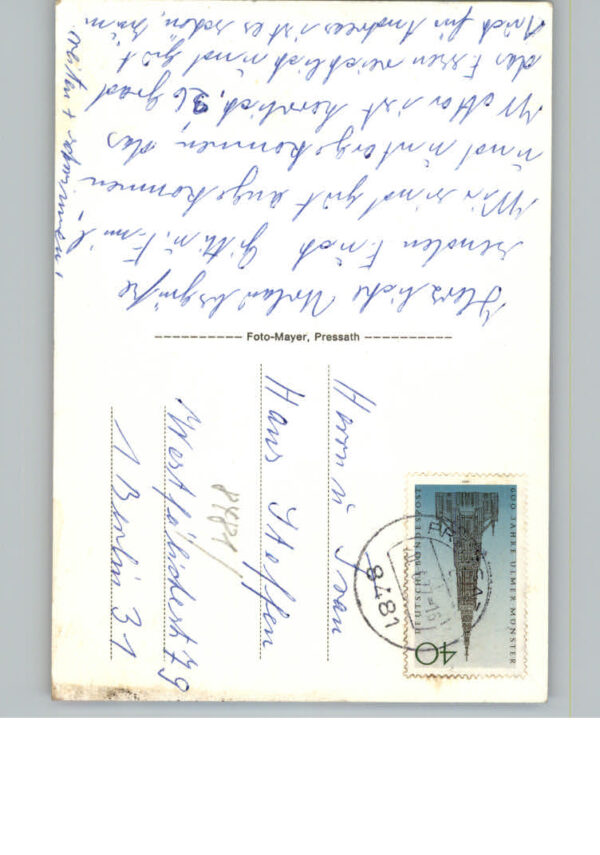 Herzliche Urlaubsgrüße
senden Euch Gitti u. Emil,
Wir sind gut angekommen
und untergekommen, das
Wetter ist herrlich, 26 Grad
das Essen reichlich und gut.
Auch für Andreas ist es schön, zum
reiten + schwimmen!
Foto-Mayer, Pressath
Herrn u Frau
Hans Steffen
Westfälischest 79
1 Berlin 31
DEUTSCHE BUNDESPOST
600 JAHRE ULMER MÜNSTER
40
8481